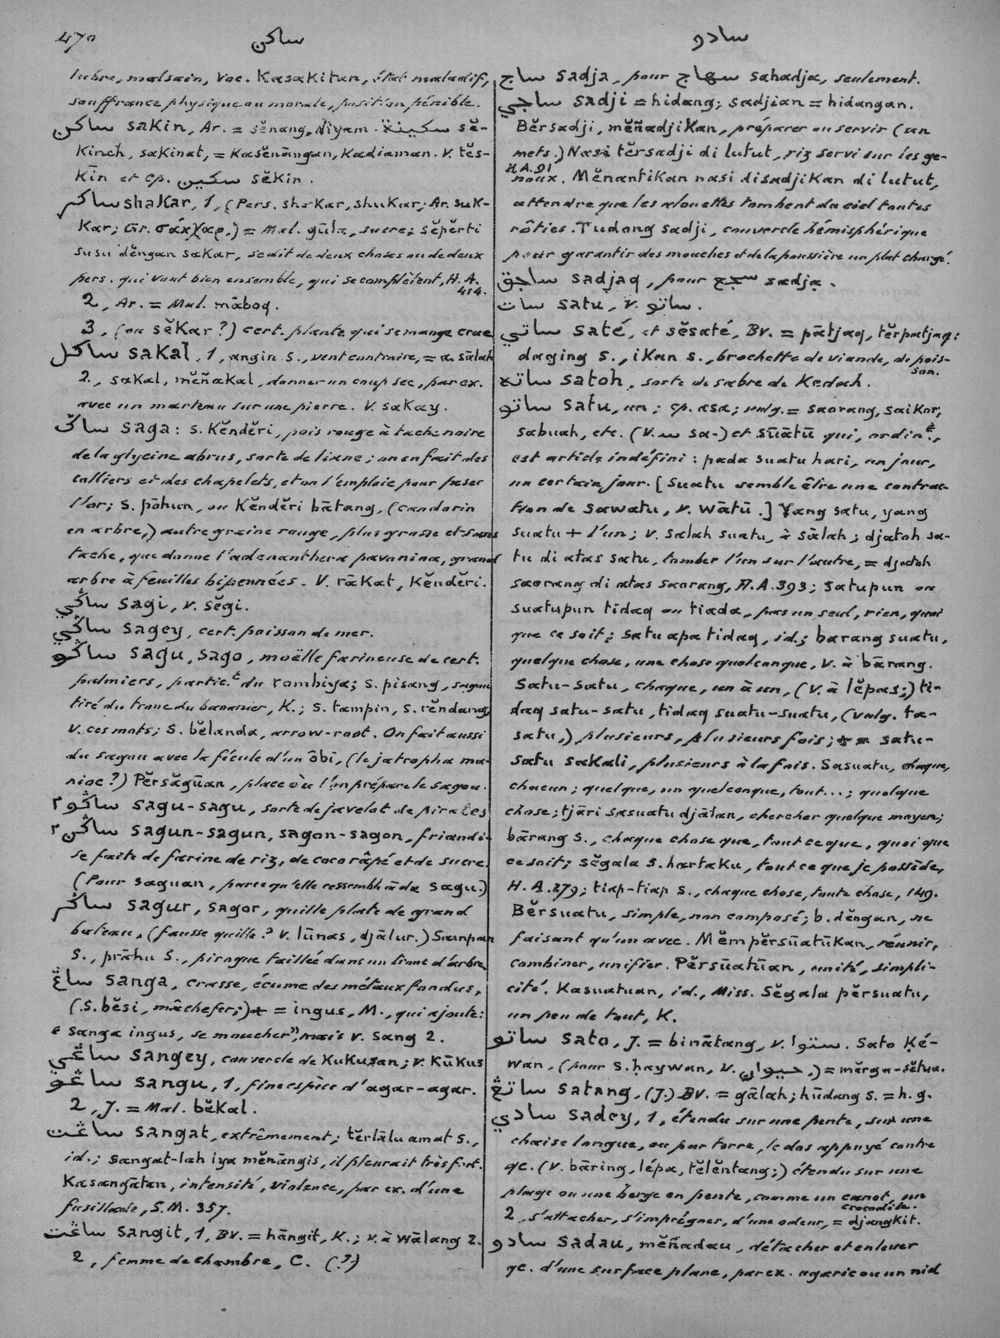 470
ساكن
سادو
lubre, malsain, voc. Kasakitan, état maladif,
souffrance physique ou morale, position pénible.
ساكن sakin, Ar. = sĕnang, diyam. سكينة sĕ-
kineh, sakinat, = kasĕnāngan, kadiaman. V. tĕs-
kīn et cp. سكين sĕkin.
ساكر shakar, 1, (Pers. shakar, shukar; Ar. suk-
kar; Gr. σάκχαρ.) = Mal. gūla, sucre; sĕpĕrti
susu dĕngan sakar, se dit de deux choses ou de deux
pers. qui vont bien ensemble, qui se complètent, H.A.
414.
2, Ar. = Mal. māboq.
3, (ou sĕkar?) cert. plante qui se mange crue
ساكل sakal, 1, angin s., vent contraire, = a. sālah
2, sakal, mĕñakal, donner un coup sec, par ex.
avec un marteau sur une pierre. V. sakay.
ساݢ saga: s. Kĕndĕri, pois rouge à tache noire
de la glycine abrus, sorte de liane; on en fait des
colliers et des chapelets, et on l'emploie pour peser
l'or; s. pōhun, ou Kĕndĕri bātang, (candorin
en arbre,) autre graine rouge, plus grosse et sans
tache, que donne l'adenanthera pavanina, grand
arbre à feuilles bipennées. V. rākat, Kĕndĕri.
ساݢي sagi, v. sĕgi.
ساݢي sagey, cert. poisson de mer.
ساݢو sagu, sago, moëlle farineuse de cert.
palmiers, partic.t du rambiya; s. pisang, sagou
tiré du tronc du bananier, K.; s. tampin, s. rĕndang,
v. ces mots; s. bĕlanda, arrow-root. On fait aussi
du sagou avec la fécule d'un ôbi, (le jatropha ma-
nioc?) Pĕrsāgūan, place où l'on prépare le sagou.
ساݢو٢ sagu-sagu, sorte de javelot de pirates
ساݢن٢ sagun-sagun, sagon-sagon, friandi-
se faite de farine de riz, de coco râpé et de sucre.
(Pour saguan, parce qu'elle ressemble à da sagu.)
ساݢر sagur, sagor, quille plate de grand
bateau, (fausse quille? v. lūnas, djālur.) Sampan
s., prāhu s., pirogue taillée dans un tronc d'arbre
ساڠ sanga, crasse, écume des métaux fondus,
(s. bĕsi, mâchefer;) = ingus, M., qui ajoute:
"sanga ingus, se moucher", mais v. sang 2.
ساڠي sangey, couvercle de kukusan; v. Kūkus
ساڠو sangu, 1, fine espèce d'agar-agar.
2, J. = Mal. bĕkal.
ساڠت sangat, extrêmement; tĕrlālu amat s.,
id.; sangat-lah iya mĕnāngis, il pleurait très fort.
Kasangātan, intensité, violence, par ex. d'une
fusillade, S.M. 357.
ساڠت sangit, 1, BV. = hāngit, K.; v. à wālang 2.
2, femme de chambre, C. (?)
ساج sadja, pour سهاج sahadja, seulement.
ساجي sadji = hidang; sadjian = hidangan.
Bĕrsadji, mĕñadjikan, préparer ou servir (un
mets.) Nasi tĕrsadji di lutut, riz servi sur les ge-
noux. H.A. 91 Mĕnantikan nasi disadjikan di lutut,
attendre que les alouettes tombent du ciel toutes
rôties. Tudong sadji, couvercle hémisphérique
pour garantir des mouches et de la poussière un plat chargé.
ساجق sadjaq, pour سجع sadja.
سات satu, v. ساتو.
ساتي saté, et sĕsaté, BV. = pātjaq, tĕrpatjaq:
daging s., ikan s., brochette de viande, de pois-
son.
ساته satoh, sorte de sabre de Kedah.
ساتو satu, un; cp. asa; vulg. = saorang, saikor,
sabuah, etc. (V. س sa-) et sūātū qui, ordin.t,
est article indéfini: pada suatu hari, un jour,
un certain jour. [Suatu semble être une contrac-
tion de sawatu, v. wātū.] Yang satu, yang
suatu + l'un; v. salah suatu, à sālah; djatoh sa-
tu di atas satu, tomber l'un sur l'autre, = djatoh
saorang di atas saorang, H.A. 393; satupun ou
suatupun tidaq ou tiada, pas un seul, rien, quoi
que ce soit; satu apa tidaq, id.; barang suatu,
quelque chose, une chose quelconque, v. à bārang.
Satu-satu, chaque, un à un, (v. à lĕpas;) ti-
daq satu-satu, tidaq suatu-suatu, (vulg. ta-
satu,) plusieurs, plusieurs fois; satu-
satu sakali, plusieurs à la fois. Sasuatu, chaque,
chacun; quelque, un quelconque, tout...; quelque
chose; tjāri sasuatu djālan, chercher quelque moyen;
bārang s., chaque chose que, tout ce que, quoi que
ce soit; sĕgala s. hartaku, tout ce que je possède,
H.A. 279; tiap-tiap s., chaque chose, toute chose, 149.
Bĕrsuatu, simple, non composé; b. dĕngan, ne
faisant qu'un avec. Mĕmpĕrsūatūkan, réunir,
combiner, unifier. Pĕrsūatūan, unité, simpli-
cité. Kasuatuan, id., Miss. Sĕgala pĕrsuatu,
un peu de tout, K.
ساتو sato, J. = binātang, v. ستوا. Sato ké-
wan, (pour s. haywan, v. حيوان,) = mĕrga-sĕtua.
ساتڠ satang, (J.) BV. = gālah; hūdang s. = h. g.
سادي sadey, 1, étendu sur une pente, sur une
chaise longue, ou par terre, le dos appuyé contre
qc. (v. bāring, lépa, tĕlĕntang;) étendu sur une
plage ou une berge en pente, comme un canot, un
crocodile.
2, s'attacher, s'imprégner, d'une odeur, = djangkit.
سادو sadau, mĕñadau, détacher et enlever
qc. d'une surface plane, par ex. agaric ou un nid